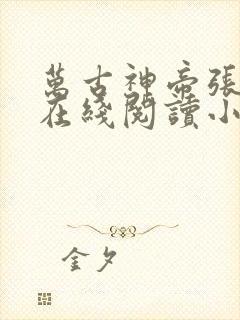 萬古神帝張
在綫閱讀小
金夕